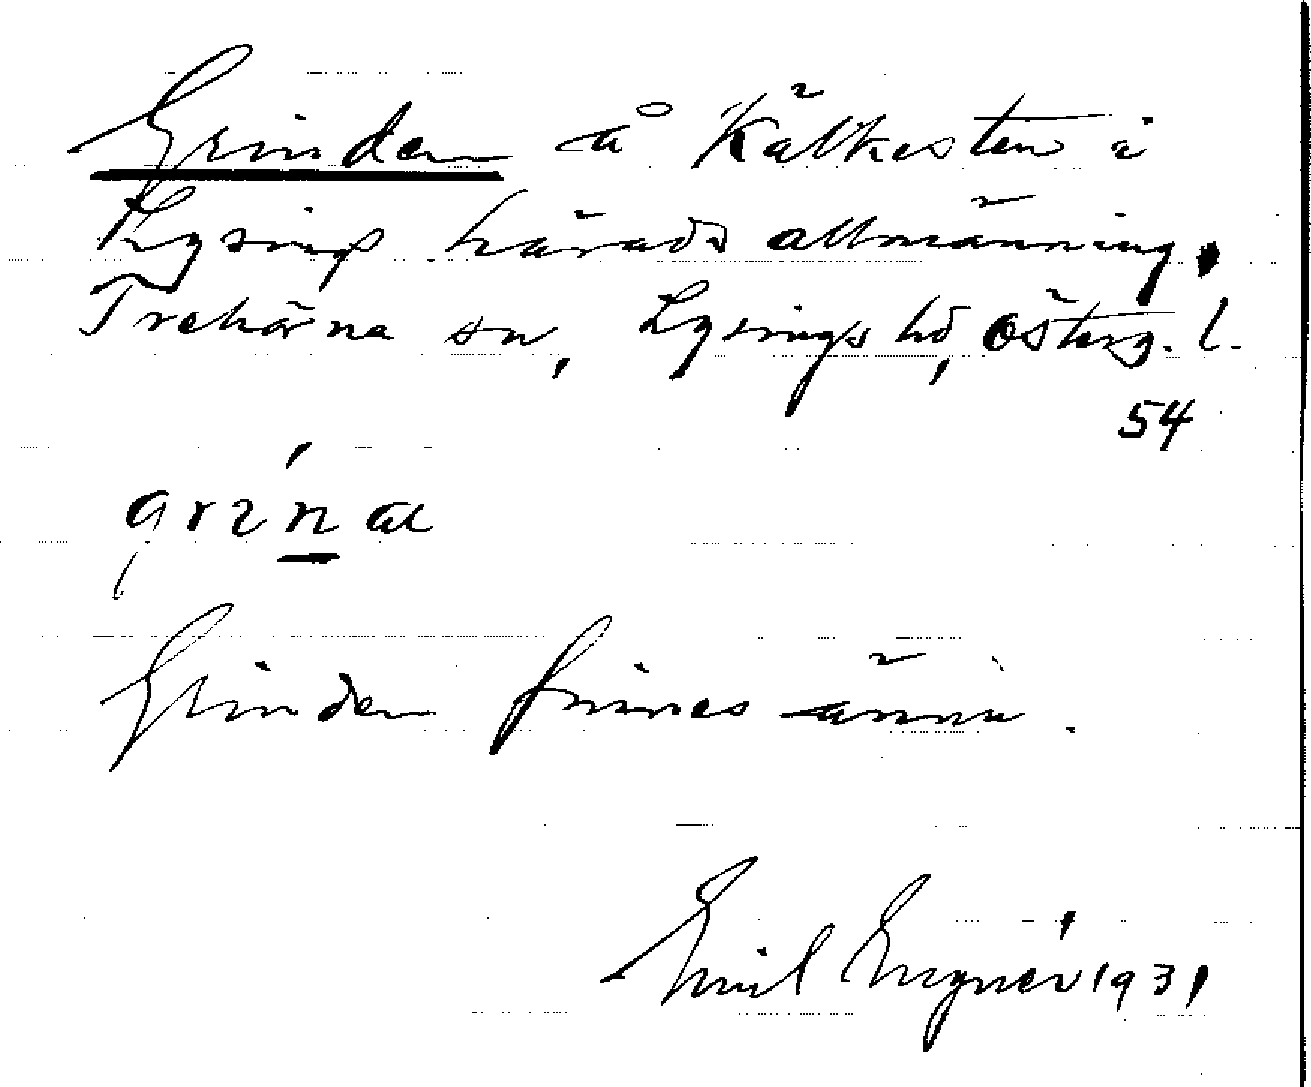 Grinden å Kälkesten i
Lysings härads allmänning,
Trehörna sn, Lysings hd, Österg. l.
54
grinæ
Grinden finnes ännu.
Emil Egnér 1931